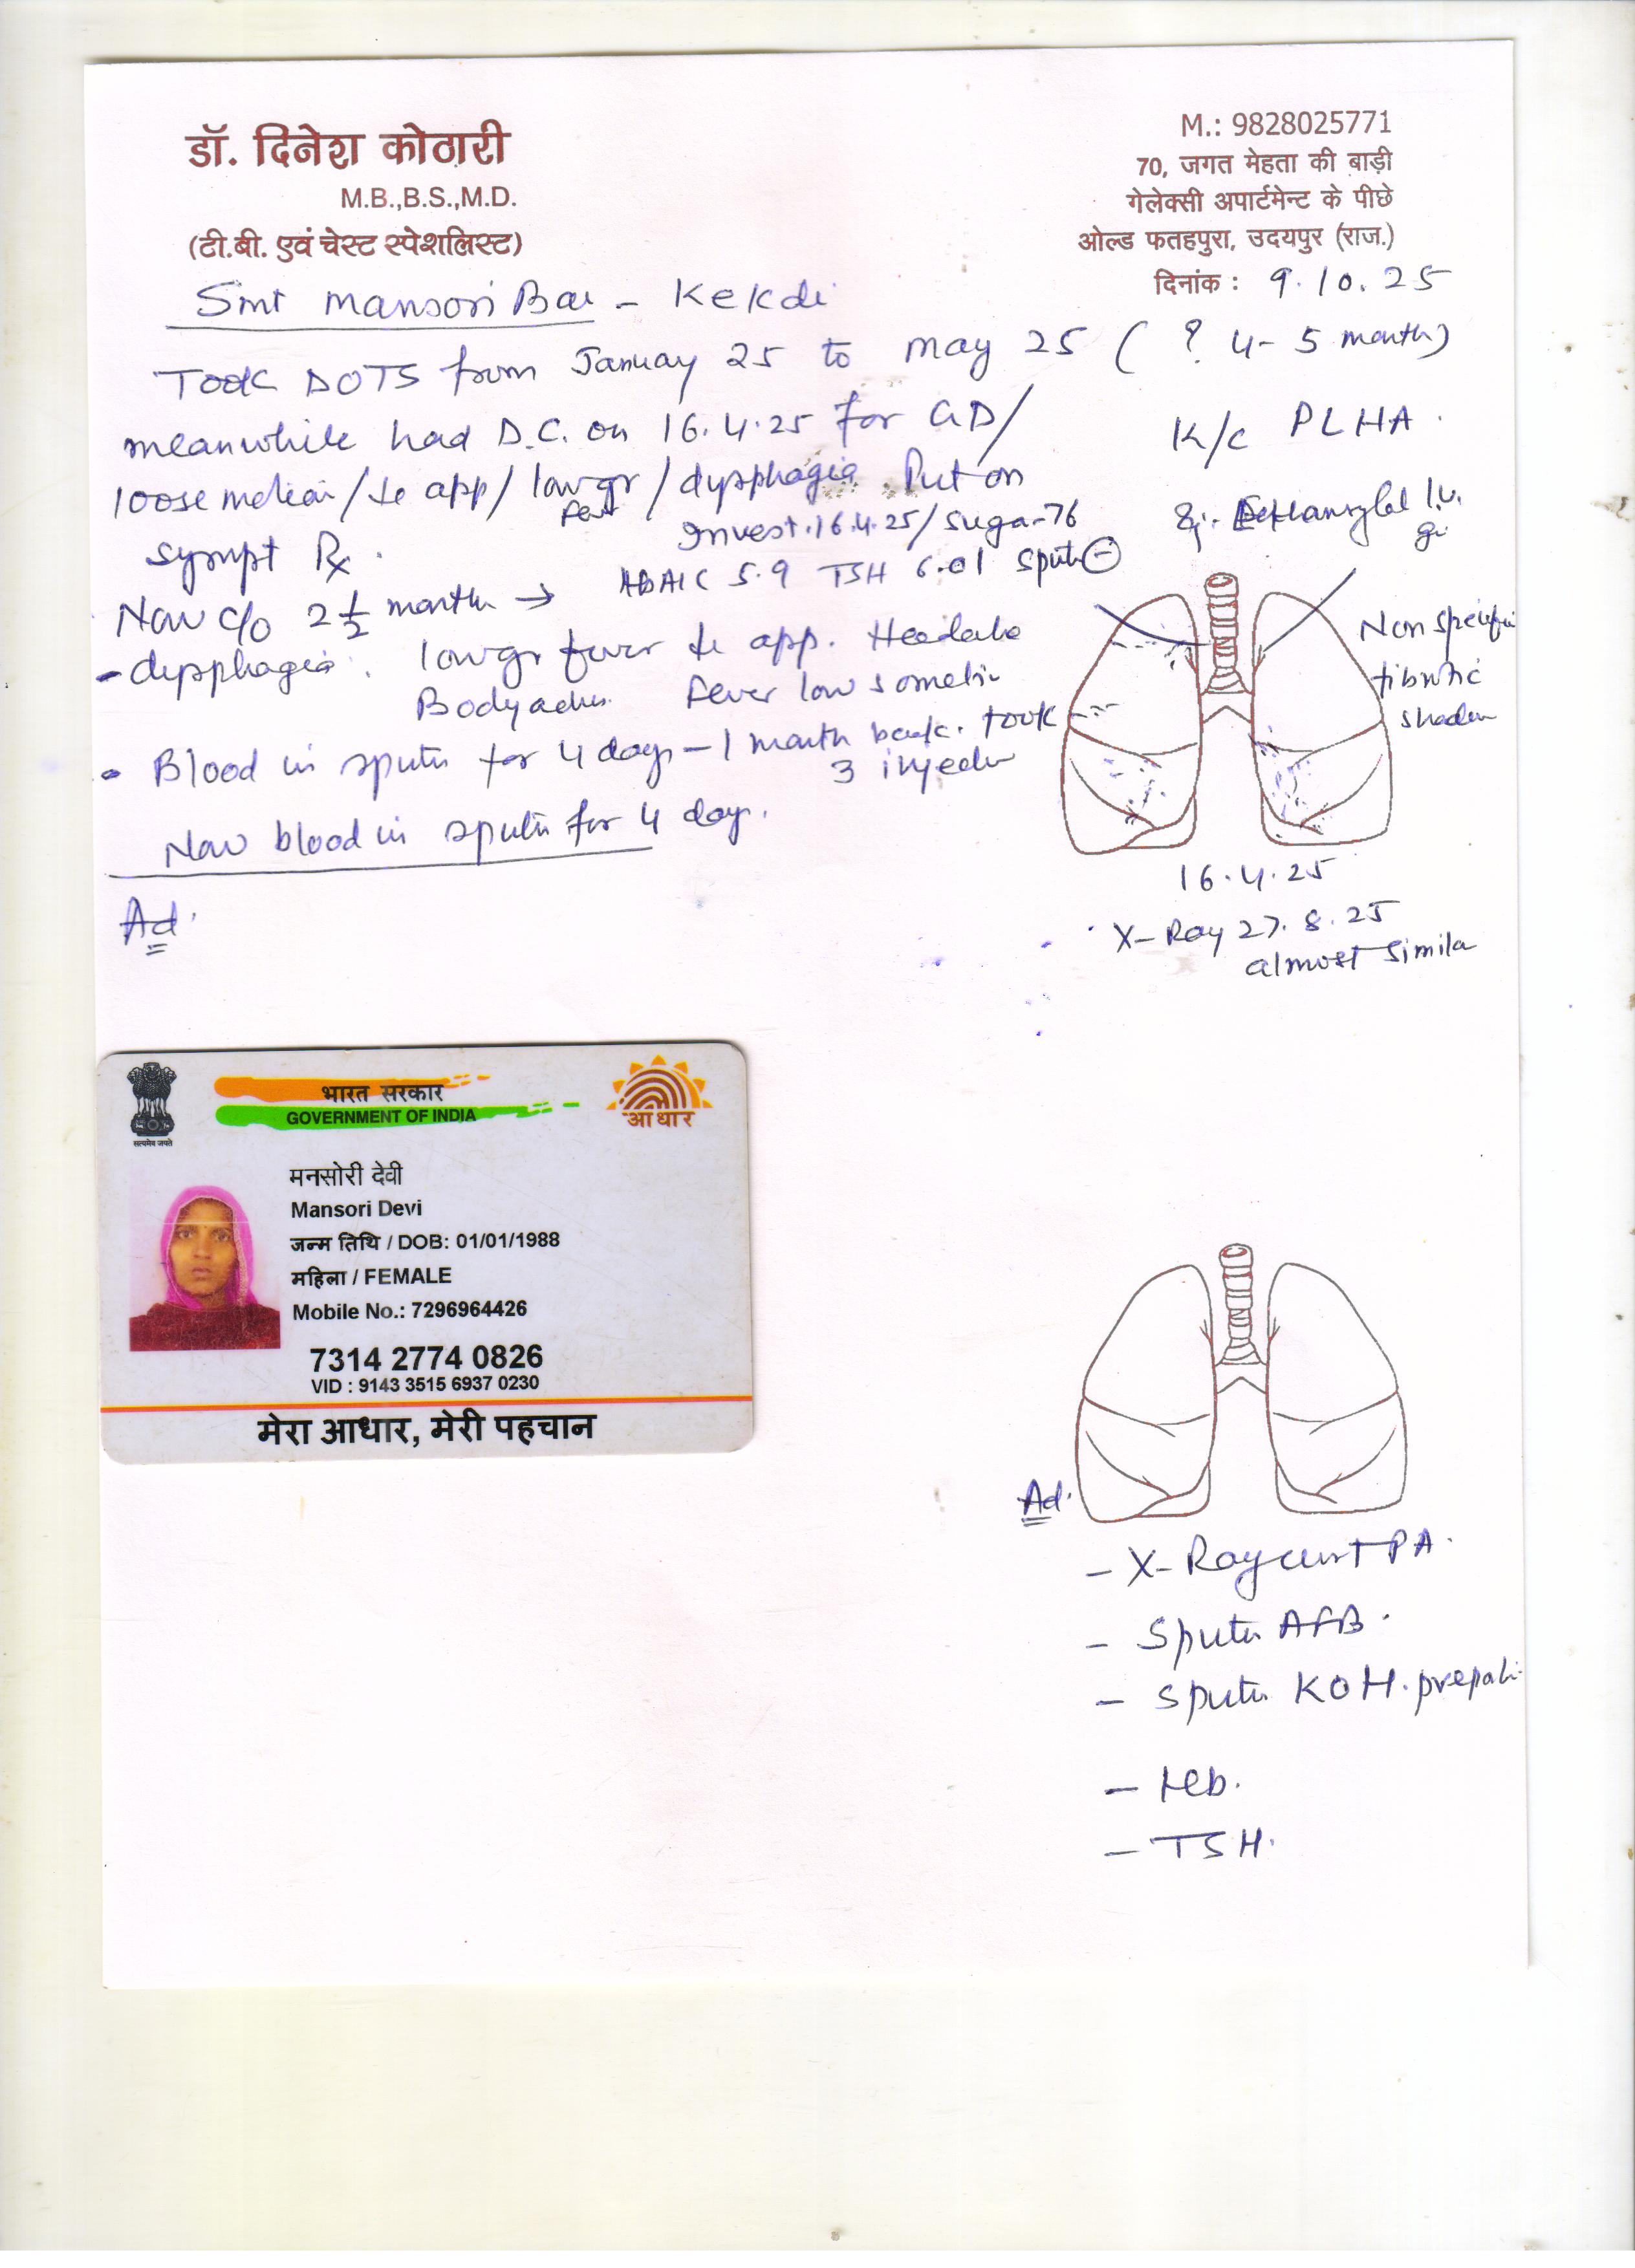 डॉ. दिनेश कोठारी
M.B.,B.S.,M.D.
(टी.बी. एवं चेस्ट स्पेशलिस्ट)
M.: 9828025771
70, जगत मेहता की बाड़ी
गेलेक्सी अपार्टमेन्ट के पीछे
ओल्ड फतहपुरा, उदयपुर (राज.)
दिनांक : 9.10.25
Smt Mansori Bai - Kekdi
Took DOTS from January 25 to may 25 ( ? 4-5 month)
meanwhile had D.C. on 16.4.25 for GD/
loose motion / ↓e app / low gr / dysphagia. Put on
fever
sympt Rx.
Invest. 16.4.25 / Sugar-76
HbA1C 5.9 TSH 6.01 Sputum ⊖
K/c PLHA.
Now c/o 2½ month →
- dysphagia. low gr fever ↓e app. Headache
Bodyaches. Fever low
• Blood in sputum for 4 days - 1 month back. took
3 injection
Now blood in sputum for 4 day.
Ad.
Non specific
fibrotic
shadow
16.4.25
X-Ray 27.8.25
almost simila
भारत सरकार
GOVERNMENT OF INDIA
सत्यमेव जयते
आधार
मनसोरी देवी
Mansori Devi
जन्म तिथि / DOB: 01/01/1988
महिला / FEMALE
Mobile No.: 7296964426
7314 2774 0826
VID : 9143 3515 6937 0230
मेरा आधार, मेरी पहचान
Ad.
- X-Ray chest PA.
- Sputum AFB.
- Sputum KOH. prepati
- Hb.
- TSH.